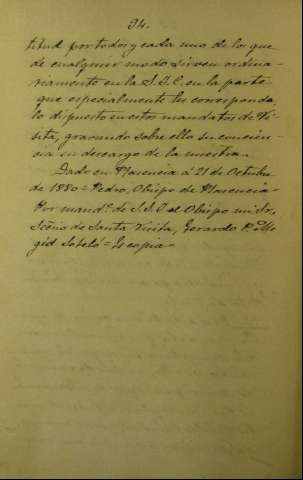 94.
titud por todos y cada uno de los que
de cualquier modo sirven ordina-
riamente en la S. I. C. en la parte
que especialmente les corresponda,
lo dispuesto en estos mandatos de Vi-
sita, gravando sobre ello su concien-
cia en descargo de la nuestra.
Dado en Plasencia á 21 de Octubre
de 1880 = Pedro, Obispo de Plasencia =
Por mand.º de S. S. I. el Obispo mi Sr,
Srio de Santa Visita, Gerardo
Sotelo = Es copia =